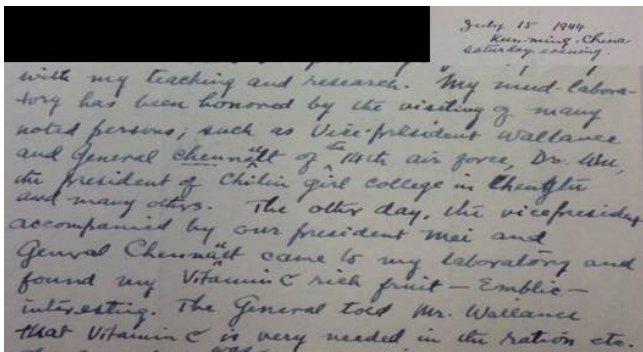 July 15 1944
Kun-ming. China
Saturday evening.
with my teaching and research. "My mud-labora-
tory has been honored by the visiting of many
noted persons, such as Vice-president Wallance
and General Chennault of the 14th air force, Dr. Wu,
the president of Chilin girl college in Chengtu
and many others. The other day, the vicepresident
accompanied by our president Mei and
General Chennault came to my laboratory and
found my Vitamin C rich fruit — Emblic —
interesting. The General told Mr. Wallance
that Vitamin C is very needed in the ration etc.